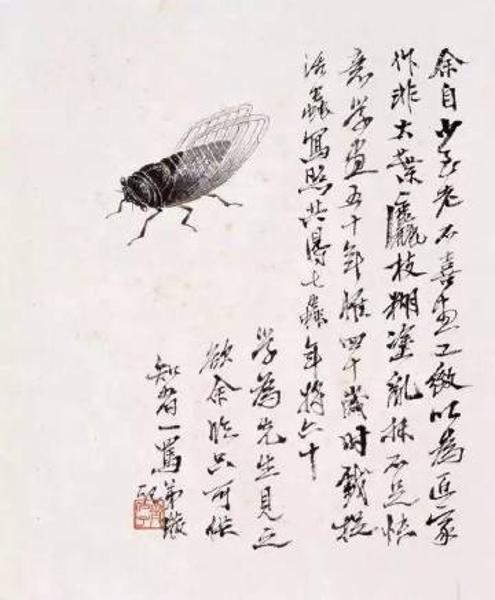 余自少至老不喜畫工緻以為匠家
作非大葉麤枝糊塗亂抹不足快
意學畫五十年惟四十歲時戲捉
活蟲寫照共得七蟲年將六十
學為先生見之
欲余臨只可供
知者一罵弟璜
記